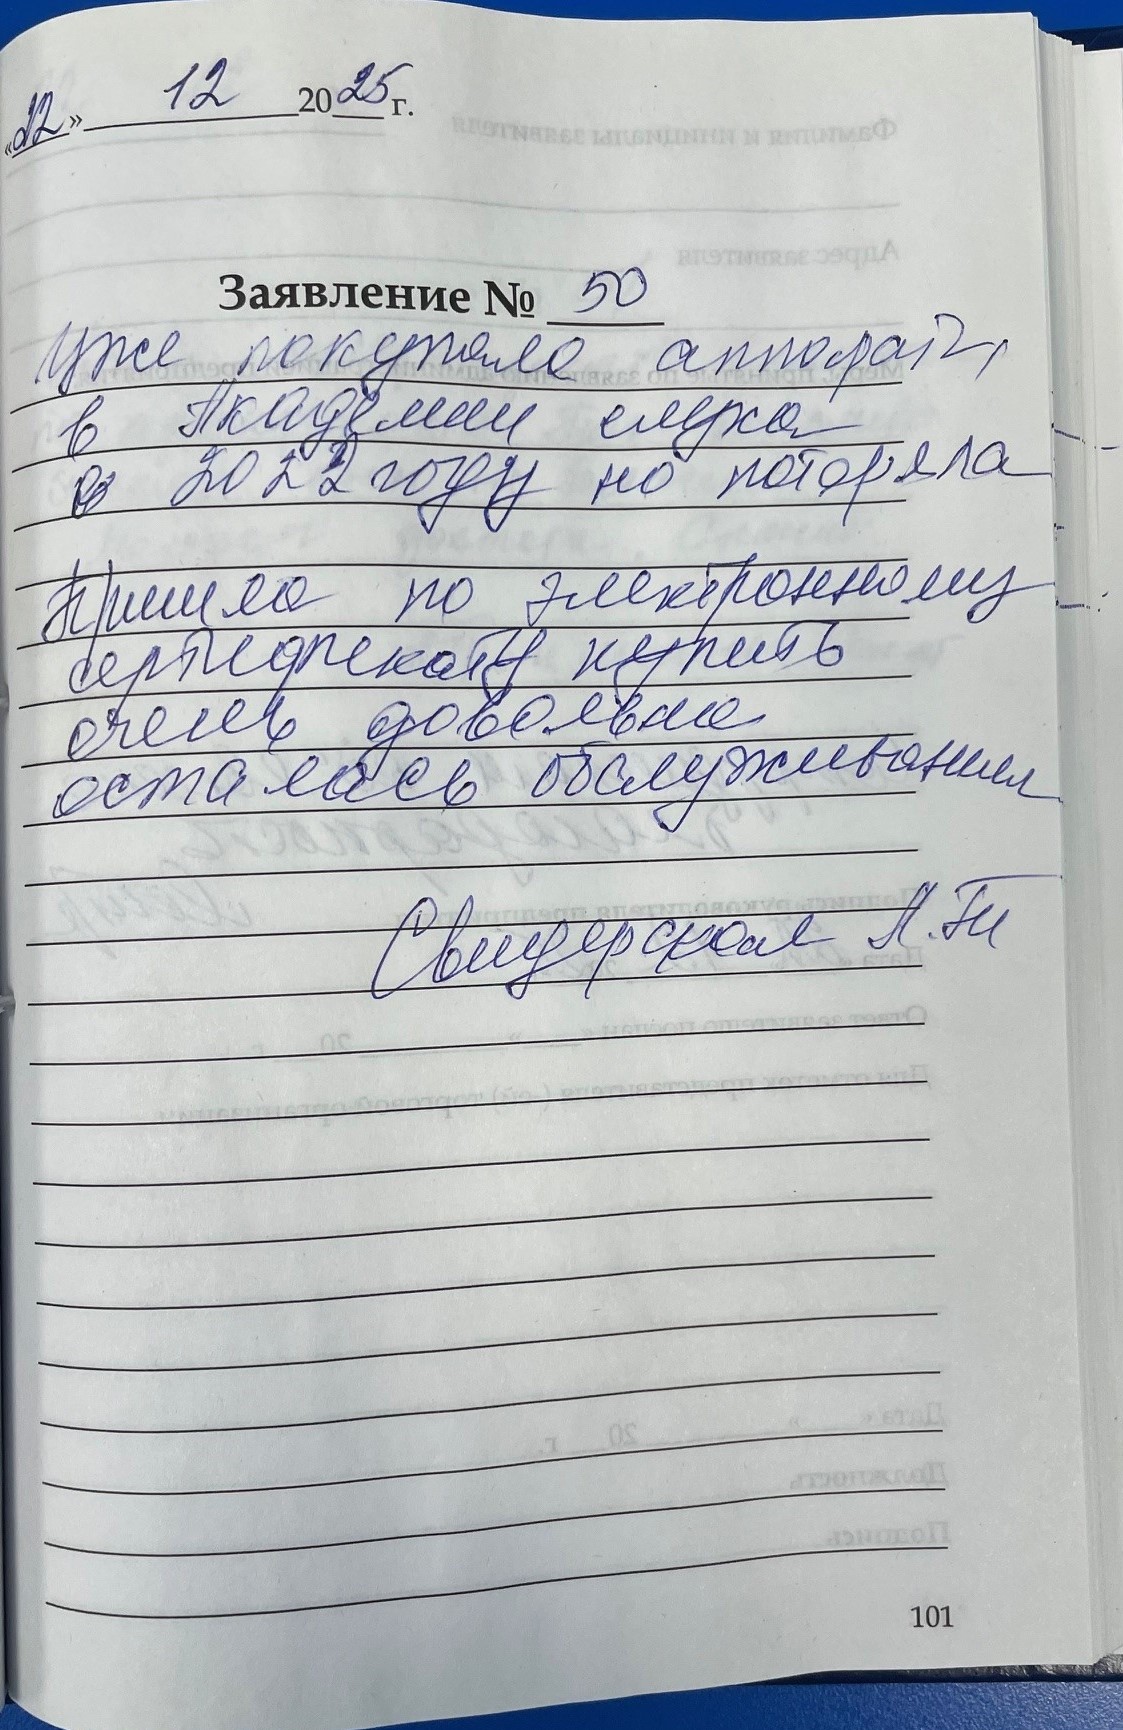 «22» 12 2025 г.
Заявление № 50
Уже покупала аппарат,
в Академии слуха
в 2022 году но потеряла
Пришла по электронному
сертификату купить
очень довольна
осталась обслуживанием
Свидерская Л.
101